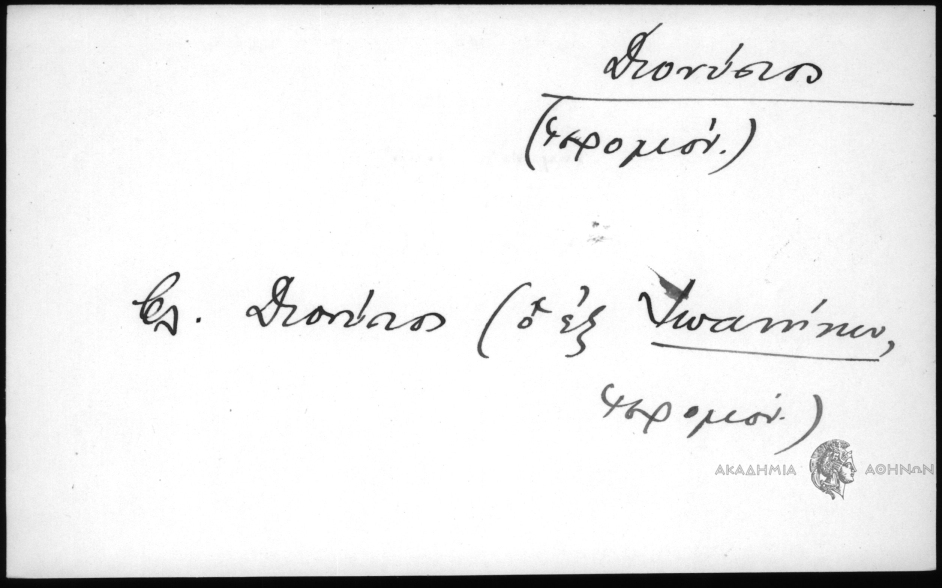 Διονύσιος
(ἱερομόν.)
Βλ. Διονύσιος (ὁ ἐξ Ἰωαννίνων,
ἱερομόν.)
ΑΚΑΔΗΜΙΑ ΑΘΗΝΩΝ